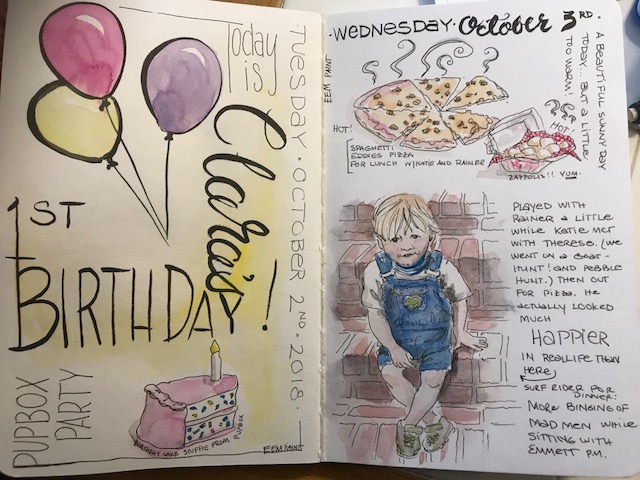 Today
is
Clara's
1ST
BIRTHDAY!
PUPBOX
PARTY
BIRTHDAY CAKE STUFFIE FROM PUPBOX
EEM PAINT
TUESDAY · OCTOBER 2ND · 2018 ·
· WEDNESDAY · October 3RD ·
A BEAUTIFUL SUNNY DAY
TODAY... BUT A LITTLE
TOO WARM!
EEM PAINT
HOT!
SPAGHETTI
EDDIES PIZZA
FOR LUNCH W/KATIE AND RAINER
HOT!
ZAPPOLIS!! YUM.
PLAYED WITH
RAINER A LITTLE
WHILE KATIE MET
WITH THERESE. (WE
WENT ON A GOAT-
HUNT! AND PEBBLE
HUNT.) THEN OUT
FOR PIZZA. HE
ACTUALLY LOOKED
MUCH
HAPPIER
IN REAL LIFE THAN
HERE)
SURF RIDER FOR
DINNER!
MORE BINGING OF
MAD MEN WHILE
SITTING WITH
EMMETT P.M.